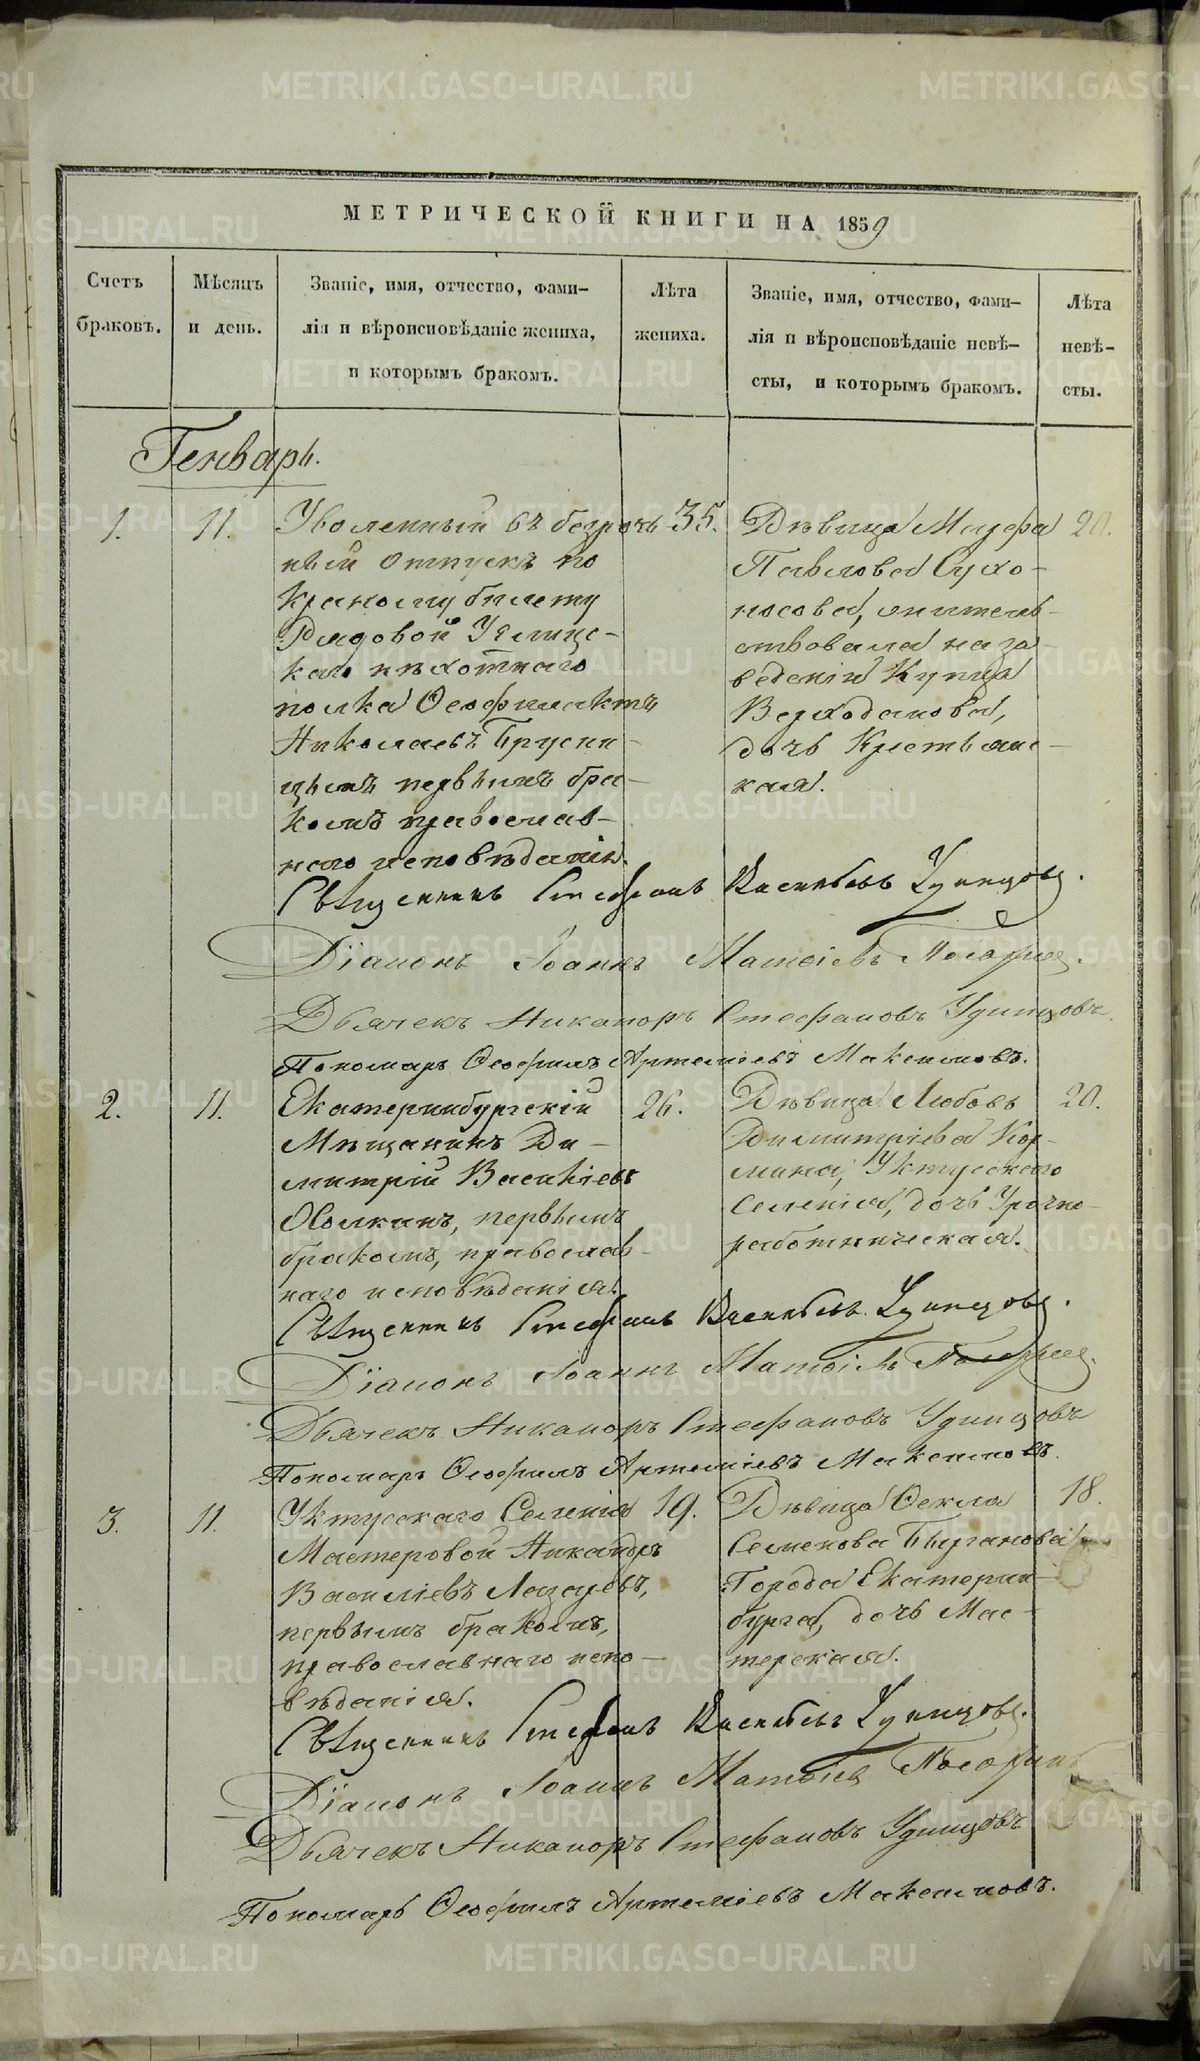 МЕТРИЧЕСКОЙ КНИГИ НА 1859
Счетъ браковъ.
Мѣсяцъ и день.
Званіе, имя, отчество, фами-
лія и вѣроисповѣданіе жениха,
и которымъ бракомъ.
Лѣта
жениха.
Званіе, имя, отчество, фами-
лія и вѣроисповѣданіе невѣ-
сты, и которымъ бракомъ.
Лѣта
невѣ-
сты.
Генварь.
1.
11.
Уволенный въ безроч
ный отпускъ по
красному билету
Рядовой
каго пѣхотнаго
полка Ѳеофилактъ
Николаевъ Брусни-
цынъ первымъ бра-
комъ православ-
наго исповѣданія.
35.
Дѣвица Марфа
Павлова Сухо-
носова, жительс-
твовала на за
веденіи Купца
Верходанова,
дочь Крестьянс-
кая.
20.
Священникъ Стефанъ Васильевъ Удинцовъ.
Діаконъ Іоаннъ Матѳіевъ
Дьячекъ Никаноръ Стефановъ Удинцовъ
Пономарь Ѳеофилъ Артеміевъ Максимовъ.
2.
11.
Екатеринбургскій
Мѣщанинъ Ди-
митрій Василіевъ
первымъ
бракомъ, православ-
наго исповѣданія.
26.
Дѣвица Любовь
Димитріева Кор-
мина, Уктусскаго
Селенія, дочь Урочно-
работническая.
20.
Священникъ Стефанъ Васильевъ Удинцовъ.
Діаконъ Іоаннъ Матѳіевъ
Дьячекъ Никаноръ Стефановъ Удинцовъ
Пономарь Ѳеофилъ Артеміевъ Максимовъ.
3.
11.
Уктусскаго Селенія
Мастеровой Никандръ
Василіевъ Лазаревъ,
первымъ бракомъ,
православнаго испо-
вѣданія.
19.
Дѣвица Ѳекла
Семенова Быганова
Города Екатерин-
бурга, дочь Мас-
терская.
18.
Священникъ Стефанъ Васильевъ Удинцовъ.
Діаконъ Іоаннъ Матѳіевъ
Дьячекъ Никаноръ Стефановъ Удинцовъ
Пономарь Ѳеофилъ Артеміевъ Максимовъ.
METRIKI.GASO-URAL.RU